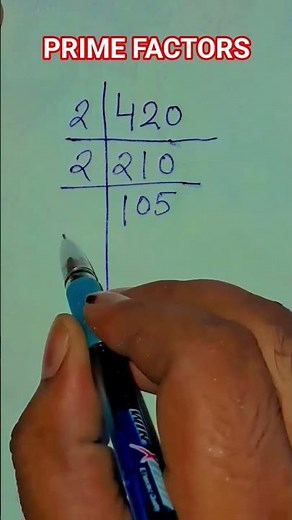 PRIME FACTORS
2 420
2 210
105